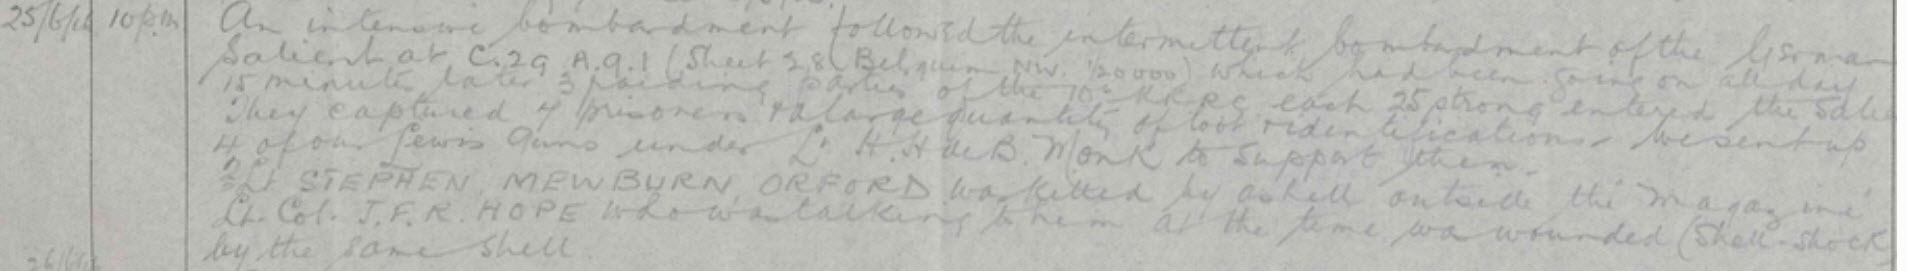 25/6/16 10 p.m. An intensive bombardment followed the intermittent bombardment of the German
Salient at C.29 A.9.1 (Sheet 28 Belgium NW. 1/20000) which had been going on all day
15 minutes later 3 raiding parties of the 10th KRRC each 25 strong entered the Salient
They captured 4 prisoners & a large quantity of loot & identifications. We sent up
4 of our Lewis Guns under Lt H.H de B. Monk to support them.
2Lt STEPHEN MEWBURN ORFORD was killed by a shell outside the Magazine
Lt. Col. J.F.R. HOPE who was talking to him at the time was wounded (Shell-shock)
by the same shell.
26/6/16